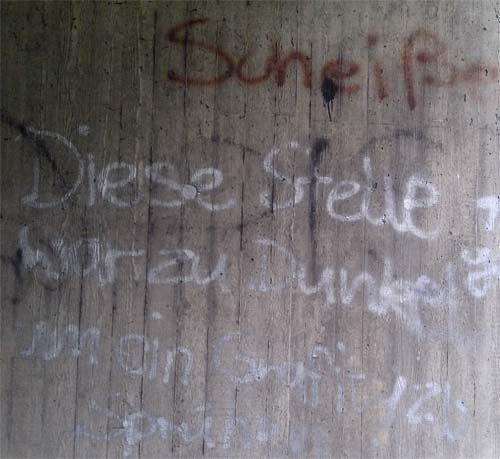 Scheiße
Diese Stelle
war zu Dunkel
um ein Graffiti zu
Sprühen